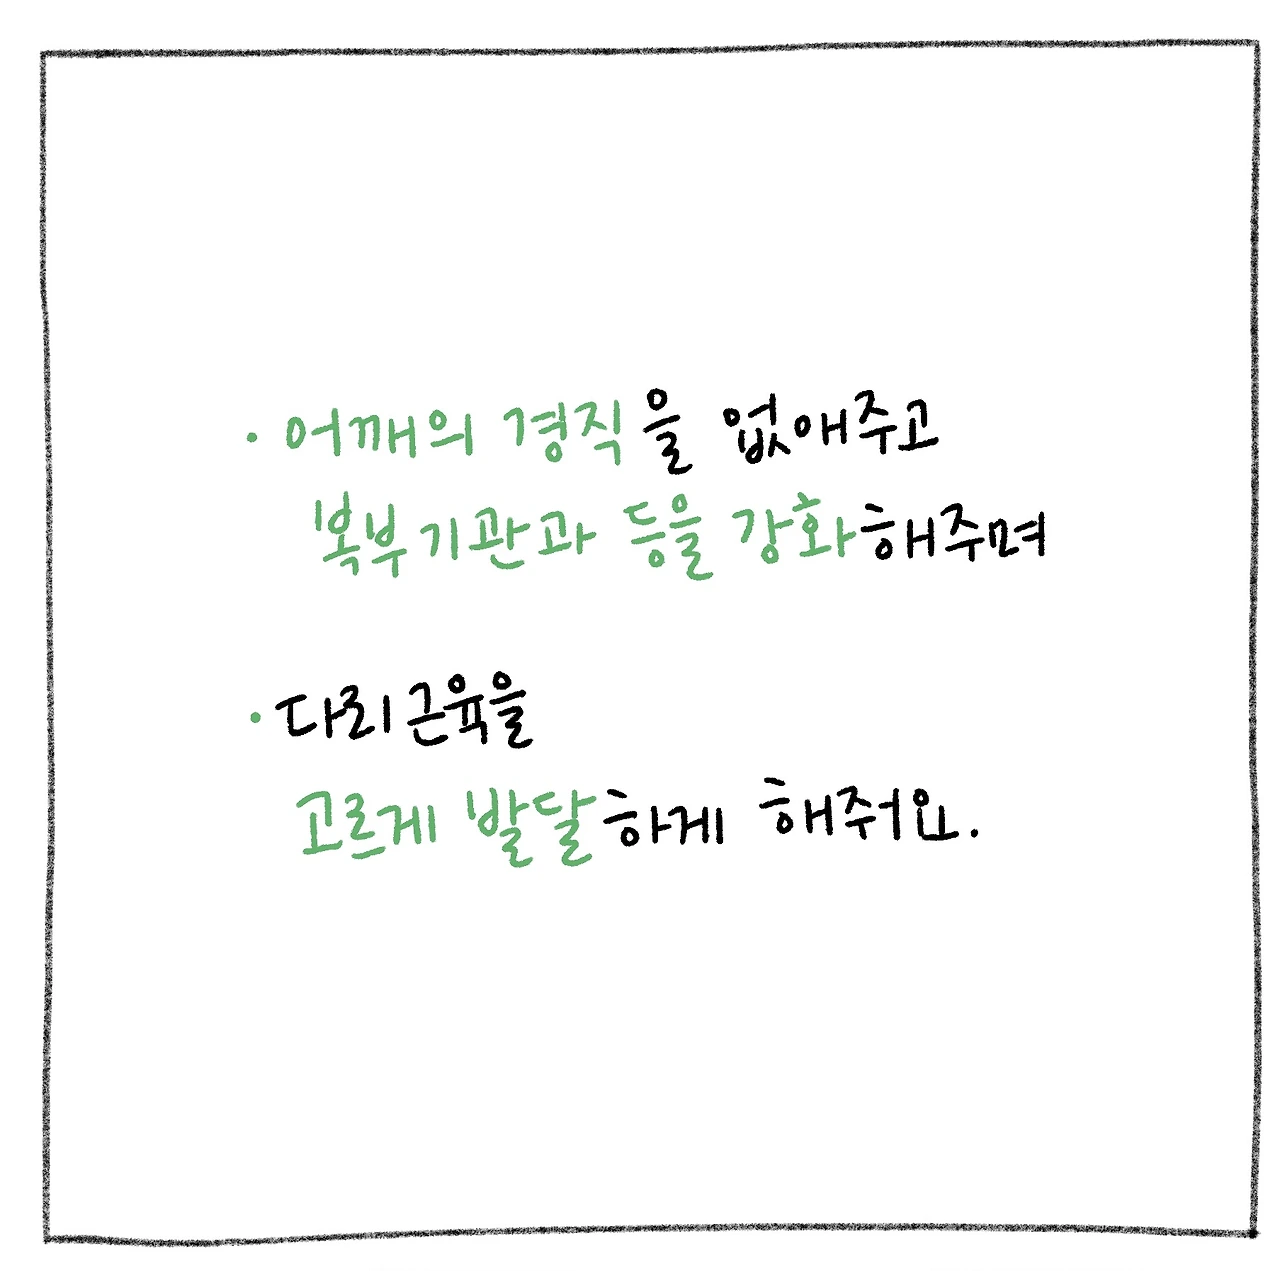 · 어깨의 경직을 없애주고
복부기관과 등을 강화해주며
· 다리근육을
고르게 발달하게 해줘요.